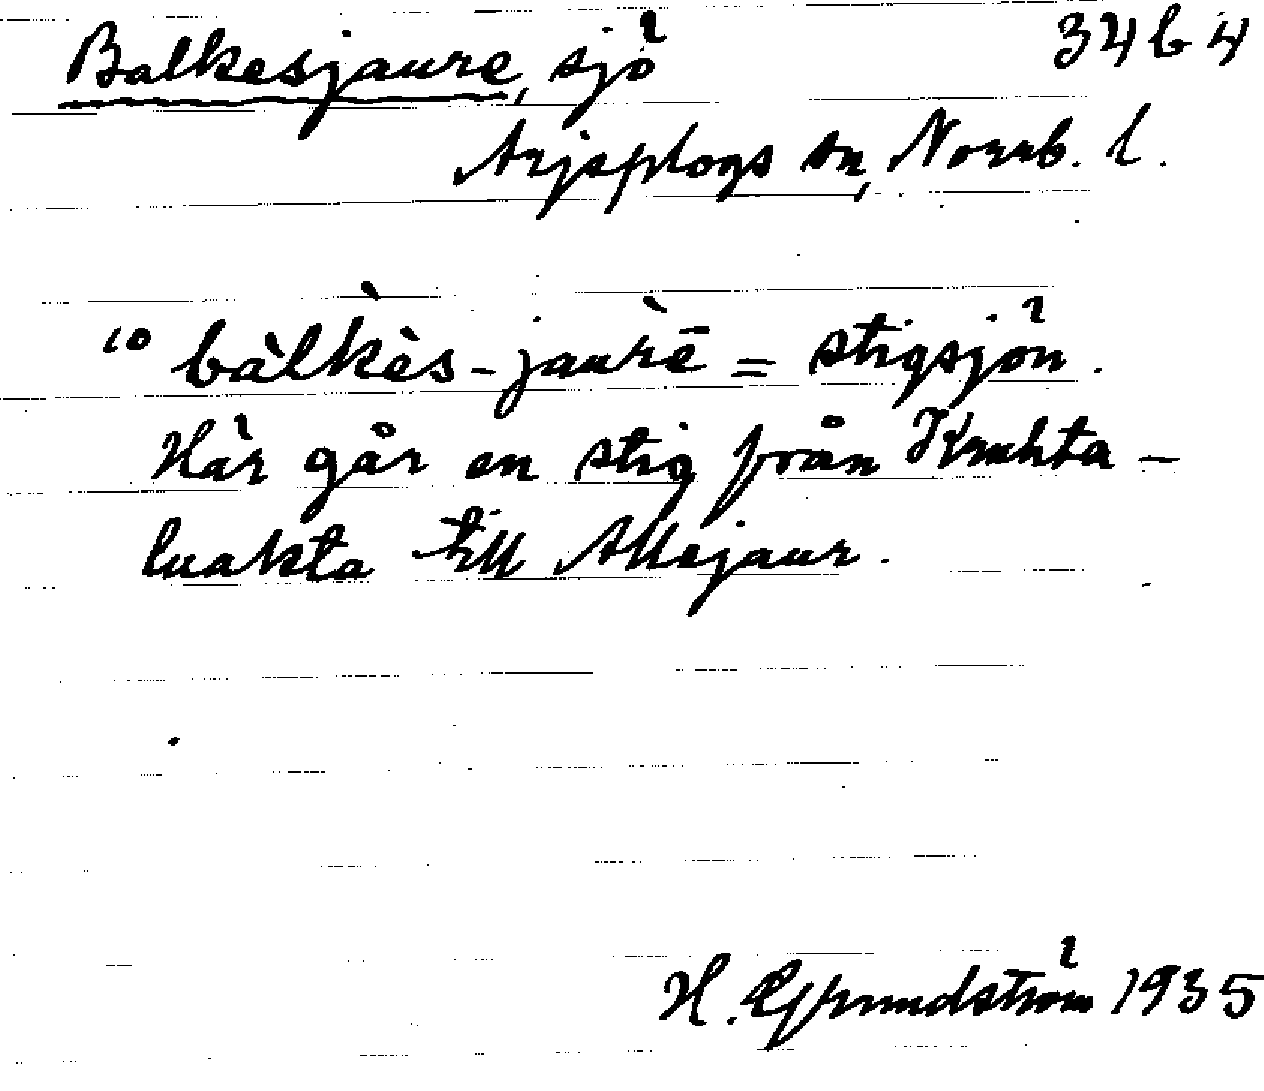 Balkesjaure, sjö 34b4
Arjeplogs sn, Norrb. l.
10 bàlkès-jaùrē = stigsjön.
Här går en stig från
luakta till Allejaur.
H. Grundström 1935